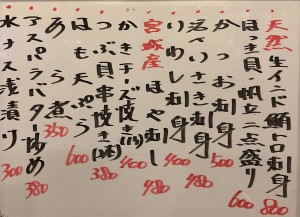 天然生インド鮪トロ刺身 800
ほっき貝・帆立二点盛り 600
かつお刺身 500
活〆いさき刺身 480
いわし刺身 400
宮城産ほやむし 480
かきチーズ焼き(1ケ) 400
つぶ貝串焼き(2本) 380
はも天ぷら 600
あら煮 350
アスパラバター炒め 380
水ナス浅漬け 300